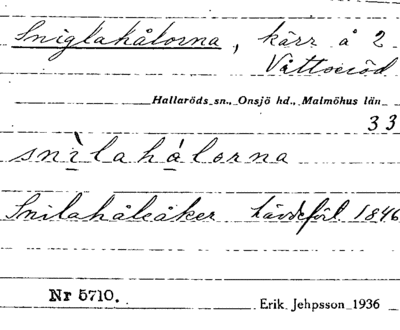 Sniglahålorna, kärr å 2
Våttseröd
Hallaröds sn., Onsjö hd., Malmöhus län
33
snìlahálorna
Snilahåleåker hävdeförl 1846
Nr 5710.
Erik Jehpsson 1936